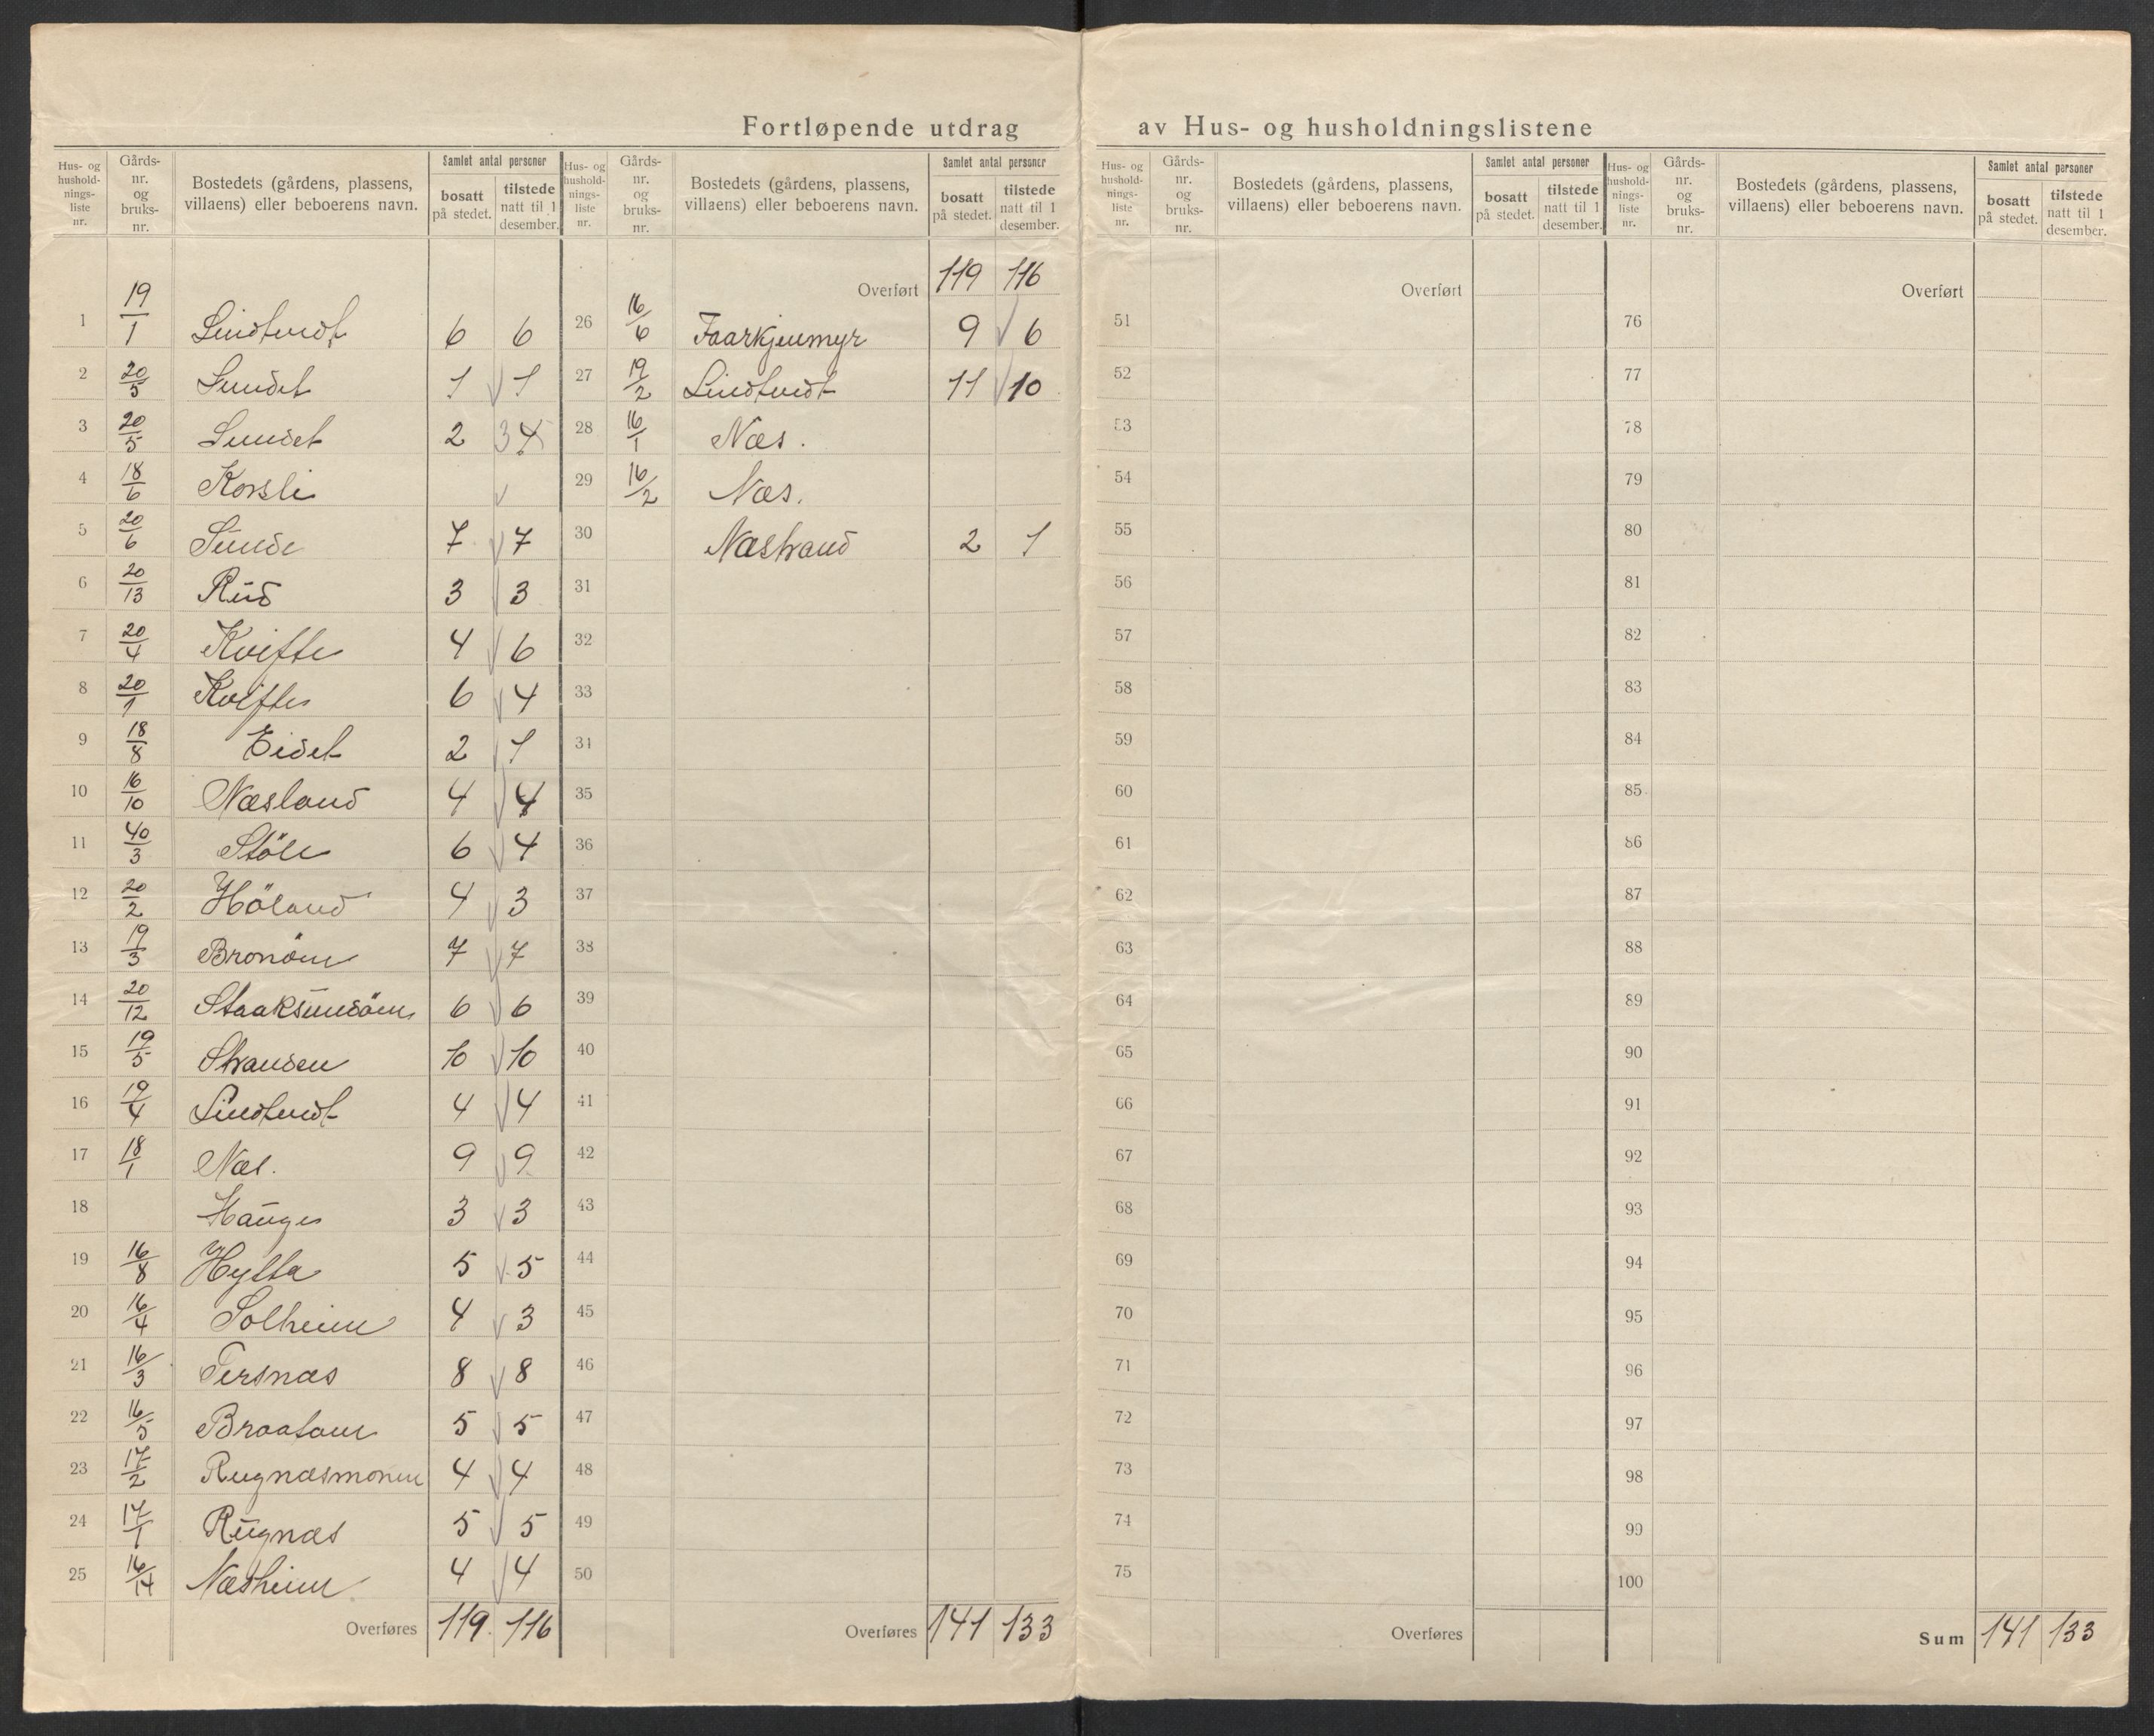 Fortløpende utdrag av Hus- og husholdningslistene
Hus- og hushold-nings-liste nr. Gårds-nr. og bruks-nr. Bostedets (gårdens, plassens, villaens) eller beboerens navn. Samlet antal personer bosatt på stedet. tilstede natt til 1 desember.
1 19/1 Lindtvedt 6 6
2 20/5 Sundet 1 1
3 20/5 Sundet 2 3 4
4 18/6 Korsli
5 20/6 Sunde 7 7
6 20/13 Rud 3 3
7 20/4 Kvifte 4 6
8 20/1 Kvifte 6 4
9 18/8 Eidet 2 1
10 16/10 Næsland 4 4
11 40/3 Støle 6 4
12 20/2 Höland 4 3
13 19/3 Bronöen 7 7
14 20/12 Staaksundöen 6 6
15 19/5 Stranden 10 10
16 19/4 Lindtvedt 4 4
17 18/1 Næs. 9 9
18 Hauge 3 3
19 16/8 Hylta 5 5
20 16/4 Solheim 4 3
21 16/3 Tersnæs 8 8
22 16/5 Braaten 5 5
23 17/2 Rugnæsmonen 4 4
24 17/1 Rugnæs 5 5
25 16/14 Næsheim 4 4
Overføres 119 116
Hus- og hushold-nings-liste nr. Gårds-nr. og bruks-nr. Bostedets (gårdens, plassens, villaens) eller beboerens navn. Samlet antal personer bosatt på stedet. tilstede natt til 1 desember.
Overført 119 116
26 16/6 Faarkjenmyr 9 6
27 19/2 Lindtvedt 11 10
28 16/1 Næs.
29 16/2 Næs.
30 Næstrand 2 1
31
32
33
34
35
36
37
38
39
40
41
42
43
44
45
46
47
48
49
50
Overføres 141 133
Hus- og hushold-nings-liste nr. Gårds-nr. og bruks-nr. Bostedets (gårdens, plassens, villaens) eller beboerens navn. Samlet antal personer bosatt på stedet. tilstede natt til 1 desember.
Overført
51
52
53
54
55
56
57
58
59
60
61
62
63
64
65
66
67
68
69
70
71
72
73
74
75
Overføres
Hus- og hushold-nings-liste nr. Gårds-nr. og bruks-nr. Bostedets (gårdens, plassens, villaens) eller beboerens navn. Samlet antal personer bosatt på stedet. tilstede natt til 1 desember.
Overført
76
77
78
79
80
81
82
83
84
85
86
87
88
89
90
91
92
93
94
95
96
97
98
99
100
Sum 141 133